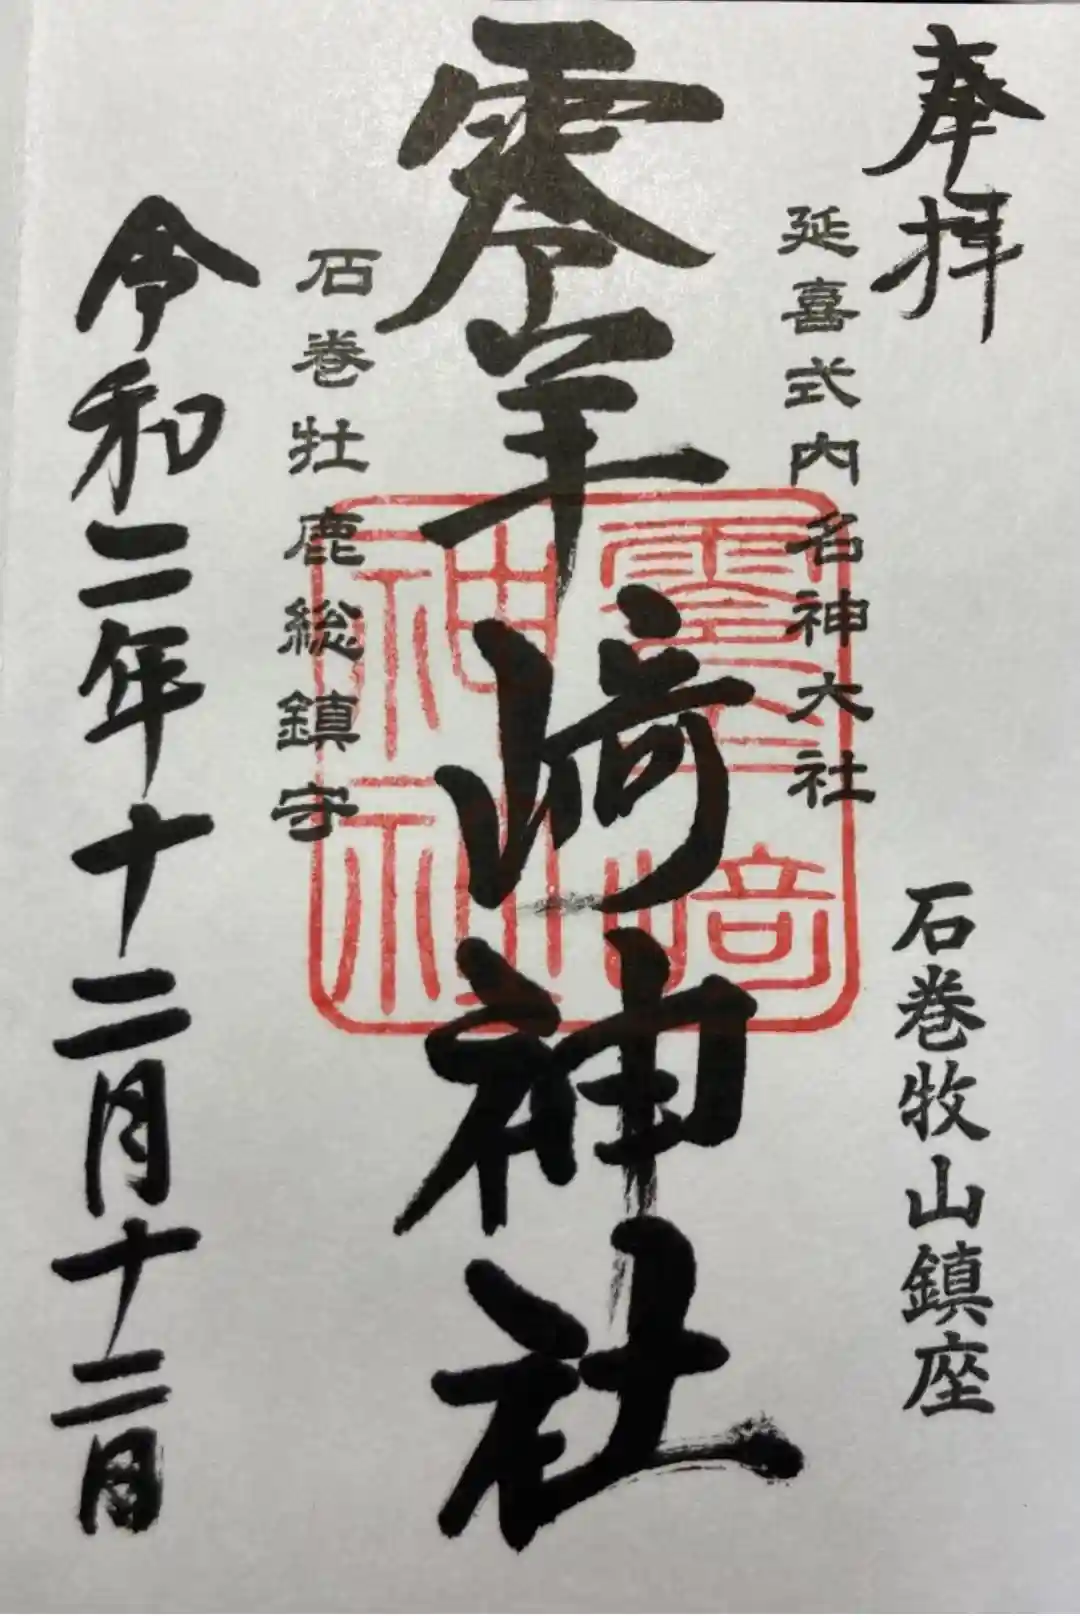 奉拝
石巻牧山鎮座
延喜式内名神大社
零羊崎神社
零羊崎
神社
石巻牡鹿総鎮守
令和二年十二月十二日